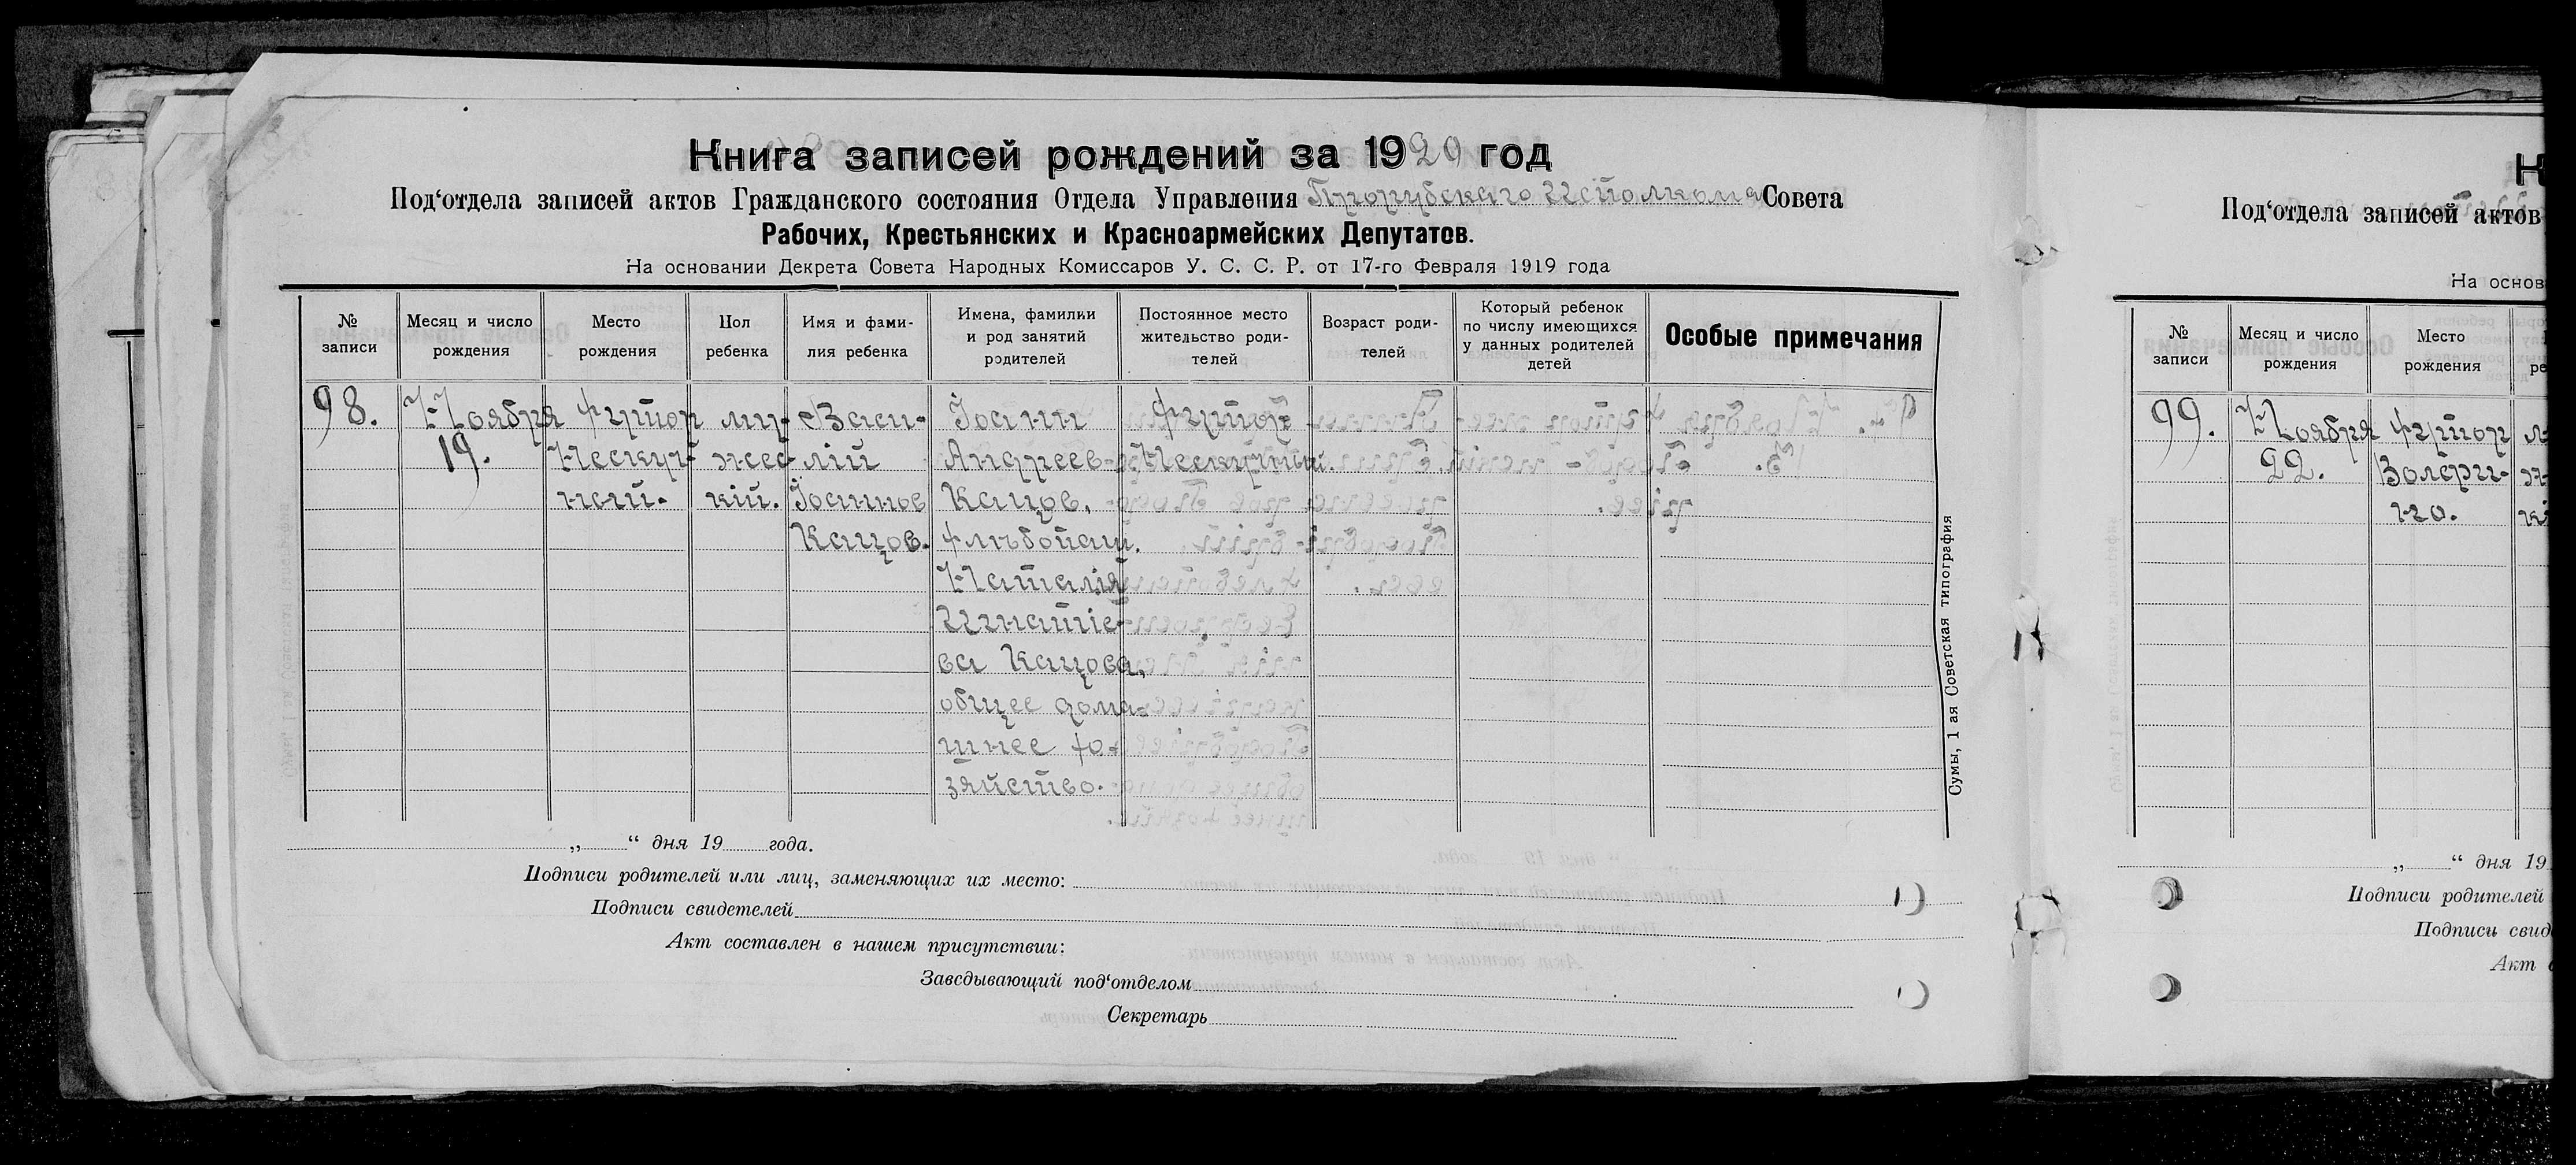 Книга записей рождений за 1920 год
Под‘отдела записей актов Гражданского состояния Отдела Управления Исполкома Совета
Рабочих, Крестьянских и Красноармейских Депутатов.
На основании Декрета Совета Народных Комиссаров У. С. С. Р. от 17-го Февраля 1919 года
№ записи
Месяц и число рождения
Место рождения
Пол ребенка
Имя и фами-
лия ребенка
Имена, фамилии
и род занятий
родителей
Постоянное место
жительство роди-
телей
Возраст роди-
телей
Который ребенок
по числу имеющихся
у данных родителей
детей
Особые примечания
98.
Ноября
19.
хутор
Нескуч-
ный.
му-
жес-
кій.
Васи-
лій
Іоаннов
Кацов.
Іоанн
Андреев
Кацов,
хлѣбопаш.
Наталія
Игнатіе-
ва Кацова,
общее дома-
шнее хо-
зяйство.
хутор
Нескучный.
„ “ дня 19 года.
Подписи родителей или лиц, заменяющих их место:
Подписи свидетелей
Акт составлен в нашем присутствии:
Заведывающий под‘отделом
Секретарь
Сумы, 1 ая Советская типография
К
Под‘отдела записей актов
На основ
№
записи
Месяц и число
рождения
Место
рождения
99.
Ноября
22.
хутор
„ “ дня 19
Подписи родителей
Подписи свид
Акт